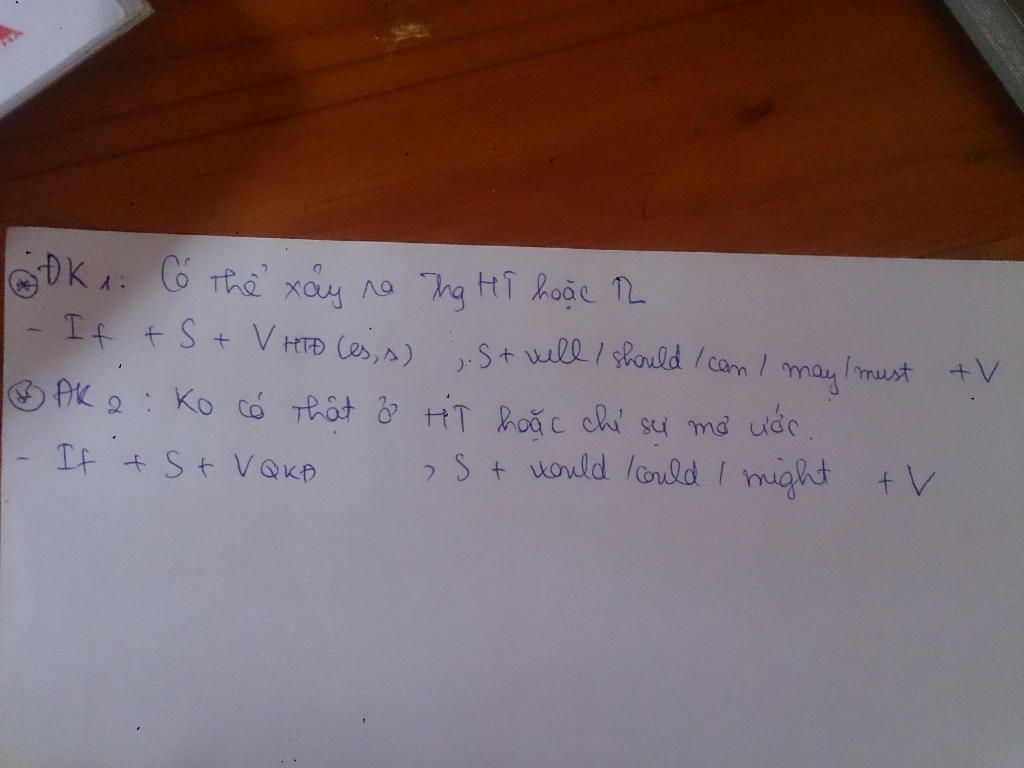 ĐK 1: Có thể xảy ra Tng HT hoặc TL
- If + S + V HTĐ (es, s) , S + will / should / can / may / must + V
ĐK 2 : Ko có thật ở HT hoặc chỉ sự mơ ước.
- If + S + V QKĐ , S + would / could / might + V